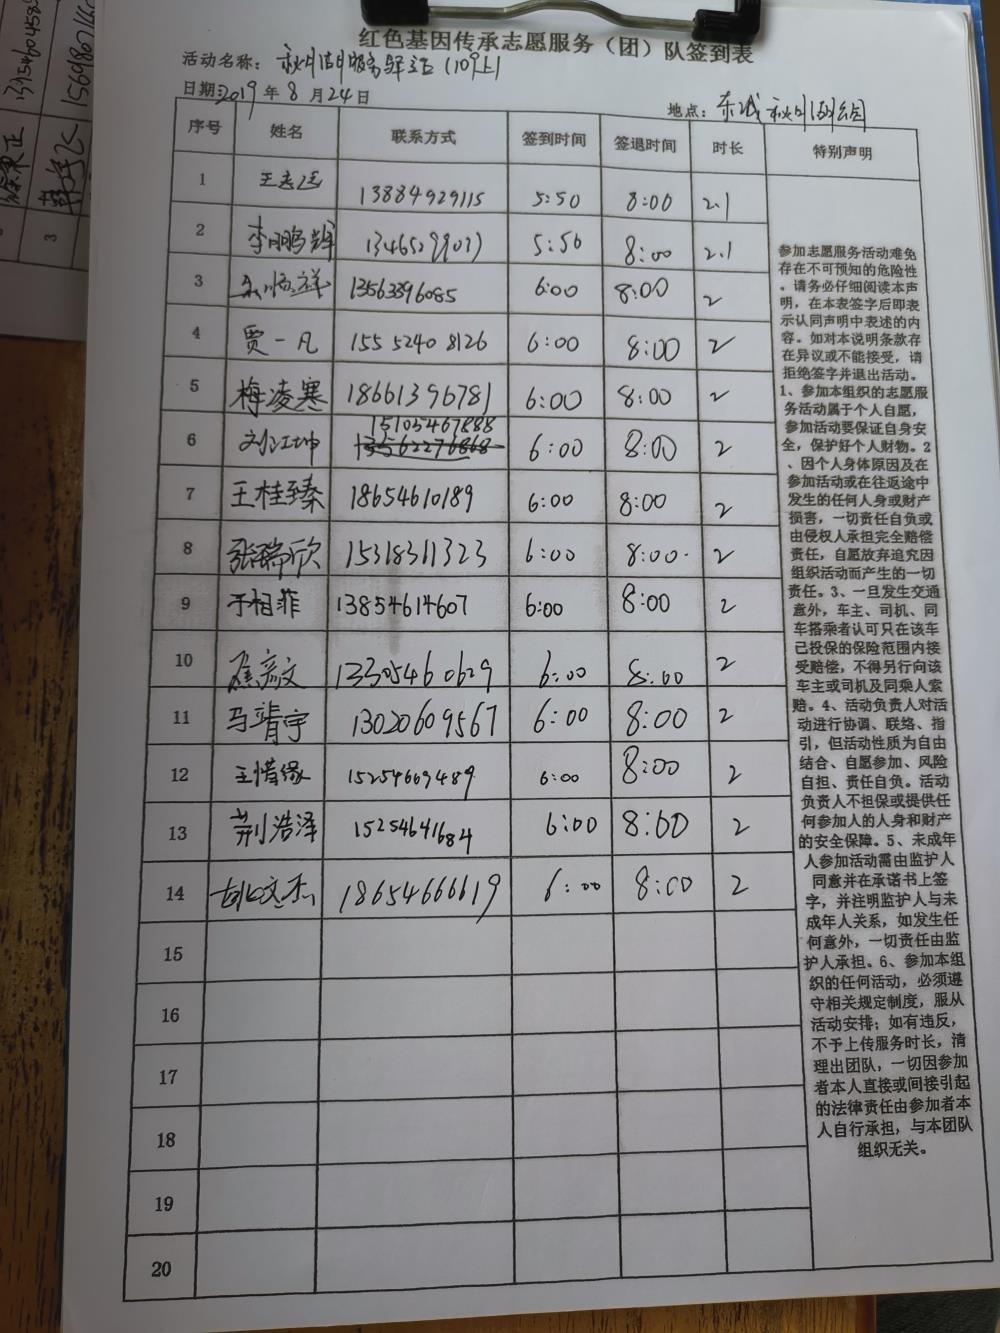 红色基因传承志愿服务（团）队签到表
活动名称：秋月湖服务驿站（109上）
日期：2019年8月24日
地点：东城秋月湖公园
序号 姓名 联系方式 签到时间 签退时间 时长 特别声明
1 13884929115 5:50 8:00 2.1
2 李鹏辉 5:50 8:00 2.1
3 13563396085 6:00 8:00 2
4 贾一凡 155 5240 8126 6:00 8:00 2
5 梅凌寒 18661396781 6:00 8:00 2
6 刘江坤 15105467888 13562276868 6:00 8:00 2
7 王桂臻 18654610189 6:00 8:00 2
8 张瑞欣 15318311323 6:00 8:00 2
9 于相菲 13854614607 6:00 8:00 2
10 13305460629 6:00 8:00 2
11 马靖宇 13020609567 6:00 8:00 2
12 王惜缘 15254669489 6:00 8:00 2
13 荆浩泽 15254641684 6:00 8:00 2
14 胡文杰 18654666619 6:00 8:00 2
15
16
17
18
19
20
参加志愿服务活动难免
存在不可预知的危险性
。请务必仔细阅读本声
明，在本表签字后即表
示认同声明中表述的内
容。如对本说明条款存
在异议或不能接受，请
拒绝签字并退出活动。
1、参加本组织的志愿服
务活动属于个人自愿，
参加活动要保证自身安
全，保护好个人财物。2
、因个人身体原因及在
参加活动或在往返途中
发生的任何人身或财产
损害，一切责任自负或
由侵权人承担完全赔偿
责任，自愿放弃追究因
组织活动而产生的一切
责任。3、一旦发生交通
意外，车主、司机、同
车搭乘者认可只在该车
已投保的保险范围内接
受赔偿，不得另行向该
车主或司机及同乘人索
赔。4、活动负责人对活
动进行协调、联络、指
引，但活动性质为自由
结合、自愿参加、风险
自担、责任自负。活动
负责人不担保或提供任
何参加人的人身和财产
的安全保障。5、未成年
人参加活动需由监护人
同意并在承诺书上签
字，并注明监护人与未
成年人关系，如发生任
何意外，一切责任由监
护人承担。6、参加本组
织的任何活动，必须遵
守相关规定制度，服从
活动安排；如有违反，
不予上传服务时长，清
理出团队，一切因参加
者本人直接或间接引起
的法律责任由参加者本
人自行承担，与本团队
组织无关。
3